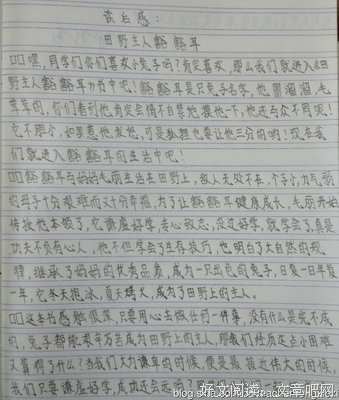 读后感:
田野主人豁豁耳
嘿,同学们你们喜欢小兔子吗?肯定喜欢,那么我们就进入《田
野主人豁豁耳》书中吧!豁豁耳是只兔子名字,他圆溜溜,毛
茸茸的,你们看到他肯定会情不自禁地摸他一下,他还与众不同呢!
它不胆小,如果惹他发怒,可是狐狸也要让他三分的哟!现在我
们就进入豁豁耳的生活中吧!
豁豁耳与妈妈毛丽生活在田野上,敌人无处不在,个子小,力气弱
的母子十分艰难而又十分幸福,为了让豁豁耳健康成长,毛丽开始
传授他本领了,它谦虚好学,专心致志,没过好学,就学会了,真是
功夫不负有心人,他不但学会了生存技巧,也明白了大自然的规
律,继承了妈妈的优秀品质,成为一只出色的兔子,日复一日年复
一年,它冬天抱冰,夏天烤火,成为了田野上的主人。
这本书感触很深,只要用心去做任何一件事,没有什么是完不成
的,兔子都能艰辛万苦成为田野上的主人,那我们经历这点小困难
又算得了什么?当我们大为谦卑的时候,便是最接近伟大的时候,
我们只要谦虚好学,成功还会远吗?
好文阅读-文章吧网